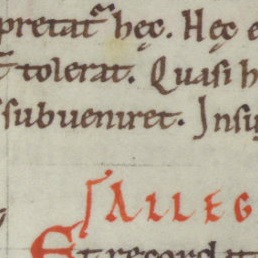 pretat᷑ hęc. Hęc e
tolerat. Quasi h
subueniret. Insu
ALLEG
Et record